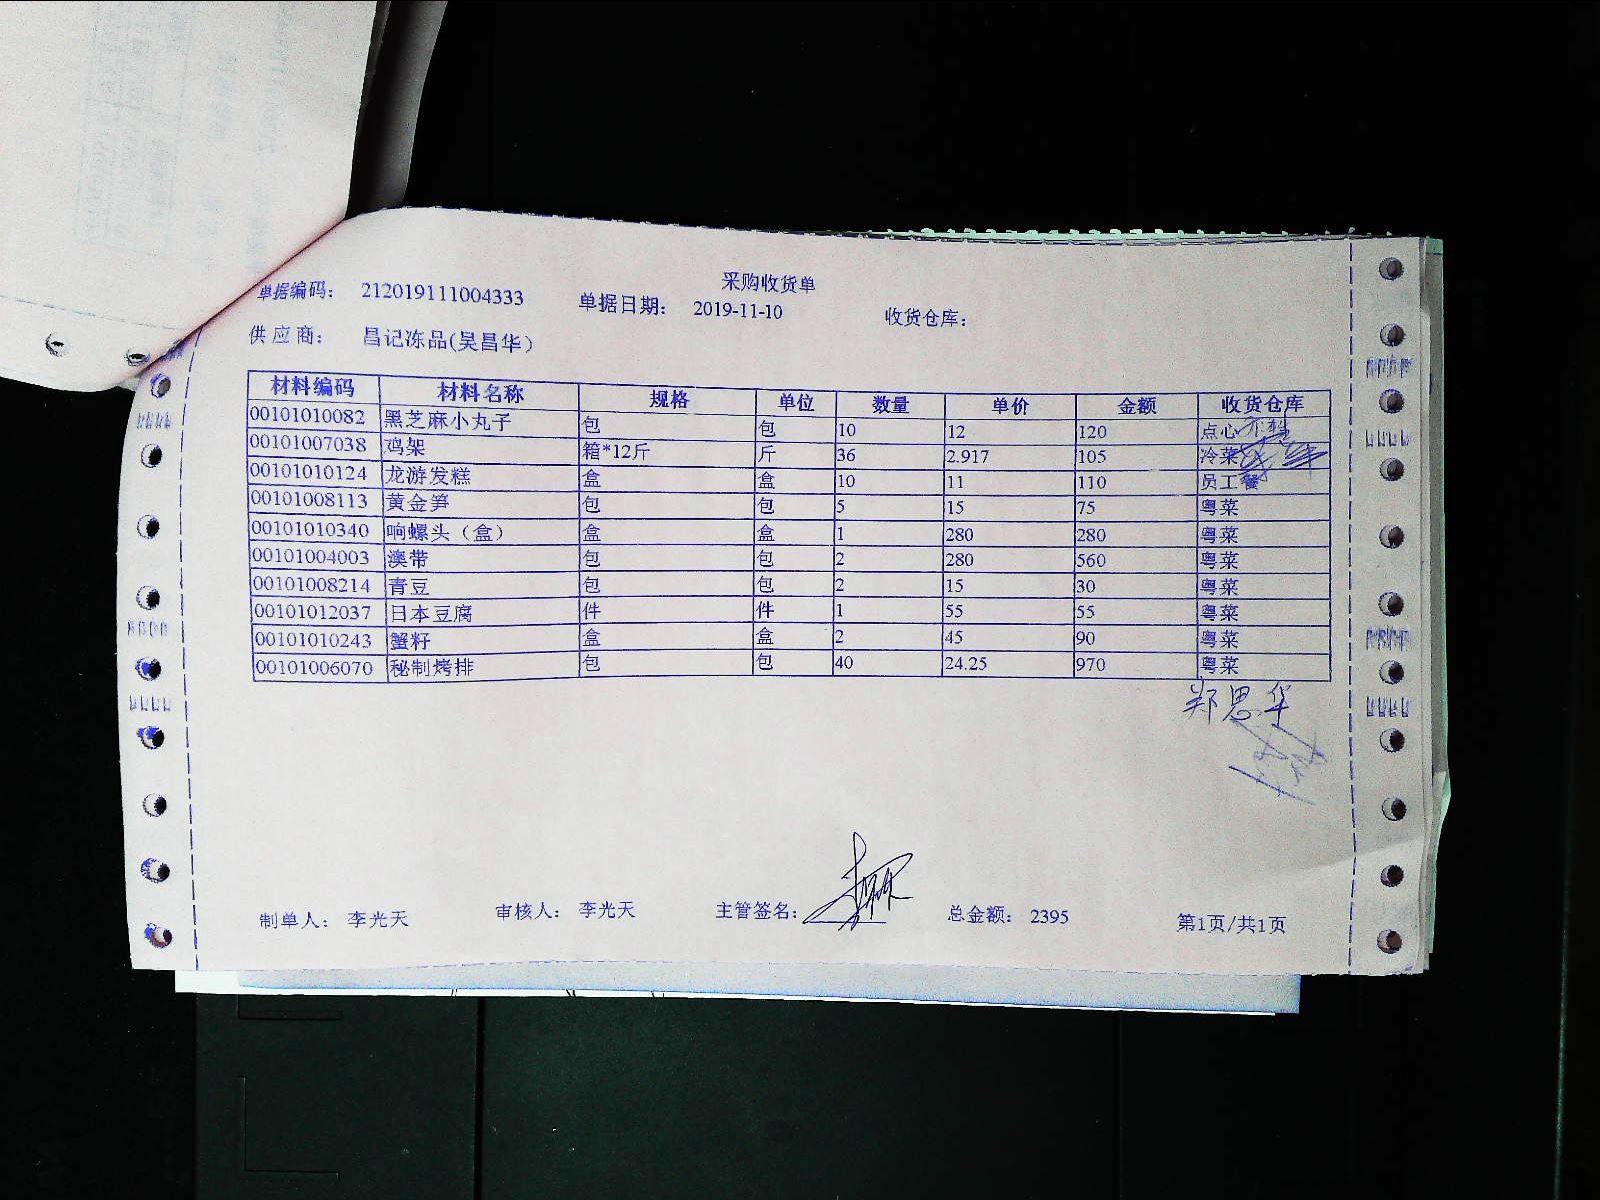 采购收货单
单据编码： 212019111004333 单据日期： 2019-11-10 收货仓库：
供应商： 昌记冻品(吴昌华)
材料编码 材料名称 规格 单位 数量 单价 金额 收货仓库
00101010082 黑芝麻小丸子 包 包 10 12 120 点心
00101007038 鸡架 箱*12斤 斤 36 2.917 105 冷菜
00101010124 龙游发糕 盒 盒 10 11 110 员工餐
00101008113 黄金笋 包 包 5 15 75 粤菜
00101010340 响螺头（盒） 盒 盒 1 280 280 粤菜
00101004003 澳带 包 包 2 280 560 粤菜
00101008214 青豆 包 包 2 15 30 粤菜
00101012037 日本豆腐 件 件 1 55 55 粤菜
00101010243 蟹籽 盒 盒 2 45 90 粤菜
00101006070 秘制烤排 包 包 40 24.25 970 粤菜
郑思华
制单人： 李光天 审核人： 李光天 主管签名： 总金额： 2395 第1页/共1页